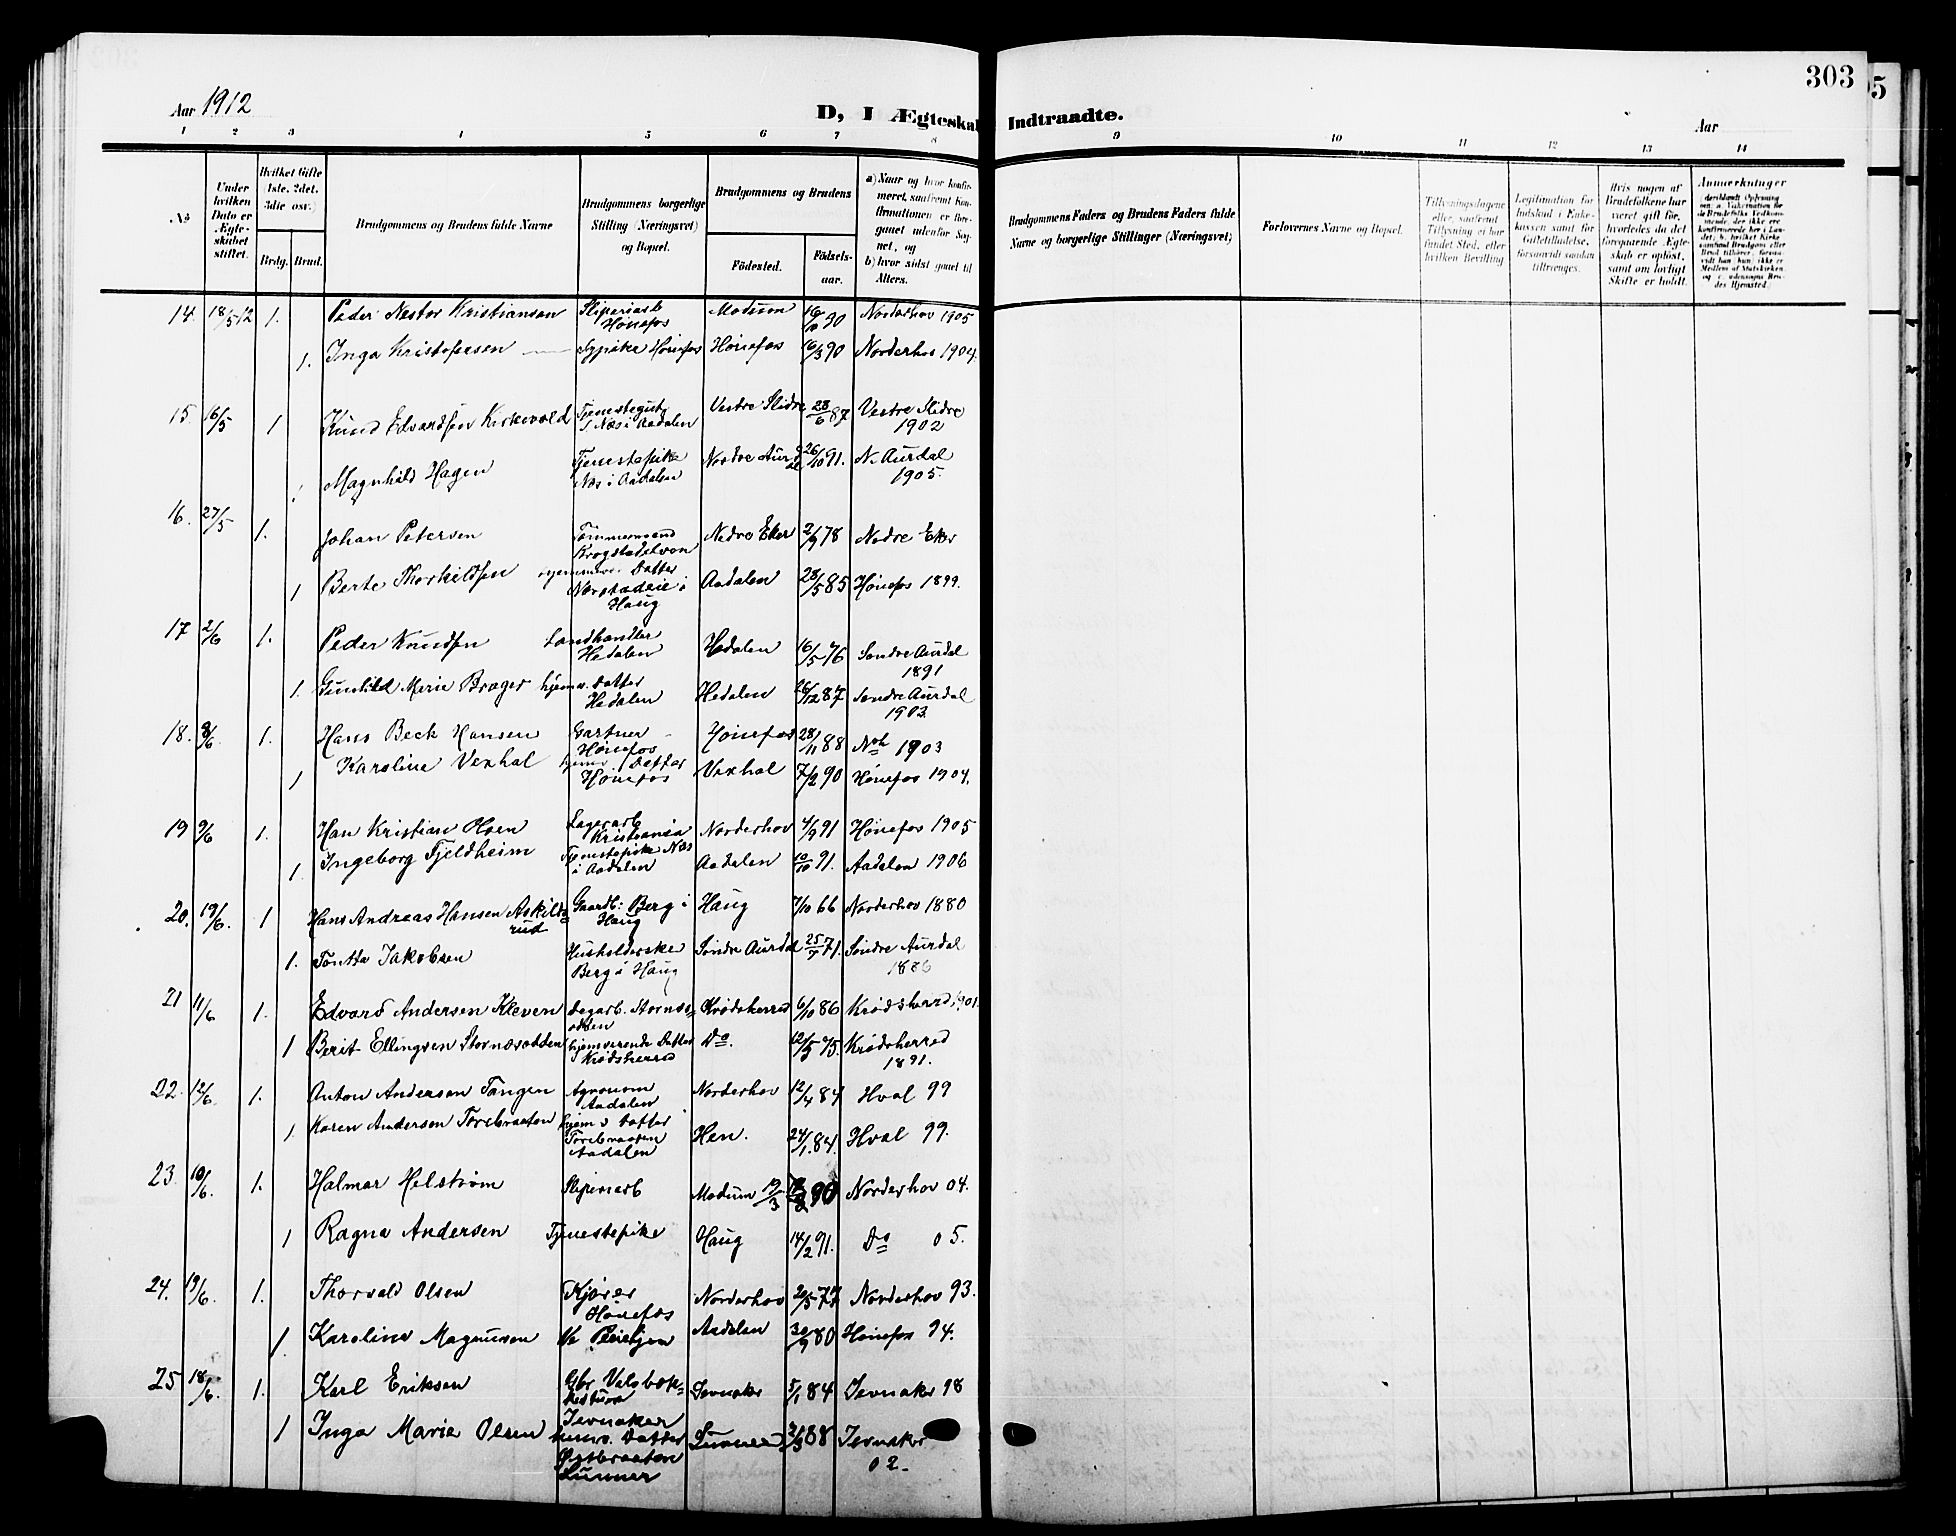 303
Aar 1912
D, I Ægteskab Indtraadte.
Aar
1 2 3 4 5 6 7 8 9 10 11 12 13 14
No
Under hvilken Dato er Ægteskabet stiftet.
Hvilket Gifte (1ste, 2det, 3die osv.)
Brdg. Brud.
Brudgommens og Brudens fulde Navne
Brudgommens borgerlige Stilling (Næringsvei) og Bopæl.
Brudgommens og Brudens
Födested.
Födselsaar.
a) Naar og hvor konfirmeret, samt
b) hvor sidst gaaet til Alters.
Brudgommens Faders og Brudens Faders fulde Navne og borgerlige Stillinger (Næringsvei)
Forlovernes Navne og Bopæl.
Tillysningsdagene eller, saafremt Tillysning ei har fundet Sted, efter hvilken Bevilling
Legitimation for Indskud i Enkekassen samt for Giftetilladelse, forsaavidt saadan tiltrænges.
Hvis nogen af Brudefolkene har været gift før, hvorledes da det foregaaende Ægteskab er opløst, samt om lovligt Skifte er holdt.
Anmerkninger
14 18/5 12 1. Peder Nestor Kristiansen Sliperiarb Hønefos Modum 16/10 90 Norderhov 1905
1. Inga Kristofersen Sypike Hønefos Hønefos 16/3 90 Norderhov 1904.
15 16/5 1 Knud Edvardsen Kirkevold Tjenestegut Næs i Aadalen Vestre Slidre 28/6 87 Vestre Slidre 1902
1 Magnhild Hagen Tjenestepike Næs i Aadalen Nordre Aurdal 26/10 91. N. Aurdal 1905.
16. 27/5 1. Johan Petersen Tømmermand Krogstadelven Nedre Eker 2/9 78 Nedre Eker
1 Berte Thorkildsen hjemmev. Datter i Haug Aadalen 28/5 85 Hønefos 1899.
17 2/6 1. Peder Knudsen Landhandler Hedalen Hedalen 16/5 76 Søndre Aurdal 1891
1. Gunhild Marie Brager hjemv. Datter Hedalen Hedalen 26/12 87 Søndre Aurdal 1903.
18. 8/6 1. Hans Beck Hansen Gartner Hønefos Hønefos 28/11 88 Nrh 1903
1 Karoline Vexhal hjemv. Datter Hønefos Vexhal 7/2 90 Hønefos 1904.
19 9/6 1. Han Kristian Olsen Lagerarb Kristiania Norderhov 4/9 91 Hønefos 1905
1. Ingeborg Fjeldheim Tjenestepike Næs i Aadalen Aadalen 10/10 91. Aadalen 1906
20. 19/6. 1 Hans Andreas Hansen Askildsrud Gaardb: Berg i Haug Haug 7/10 66 Norderhov 1880
1. Tontta Jakobsen Husholderske Berg i Haug Søndre Aurdal 25/7 71. Søndre Aurdal 1886
21 11/6 1. Edvard Andersen Kleven Krødsherred 6/10 86 Krødsherred 1901.
1 Berit Ellingsen Stornæsodden hjemværende Datter Krødsherred Do. 12/5 75. Krødsherred 1891.
22. 12/6 1. Anton Andersen Tangen Agronom Aadalen Norderhov 12/4 84 Hval 99
1. Karen Andersen Torebraaten hjemv Datter Torebraaten Aadalen Hen. 24/1. 84. Hval 99.
23 10/6. 1. Halmar Helstrøm Sliperiarb Modum 19/3 90 Norderhov 04.
1 Ragna Andersen Tjenestepike Haug 14/2 91. Do 05.
24. 19/6. 1. Thorvald Olsen Kjører Hønefos Norderhov 20/5 77 Norderhov 93.
1. Karoline Magnussen Aadalen 30/9 80 Hønefos 94.
25 18/6. 1. Karl Eriksen Gbr Jevnaker Jevnaker 5/1 84 Jevnaker 98
1 Inga Marie Olsen hjemv. Datter Lunner Lunner 2/3 88 Jevnaker 02.